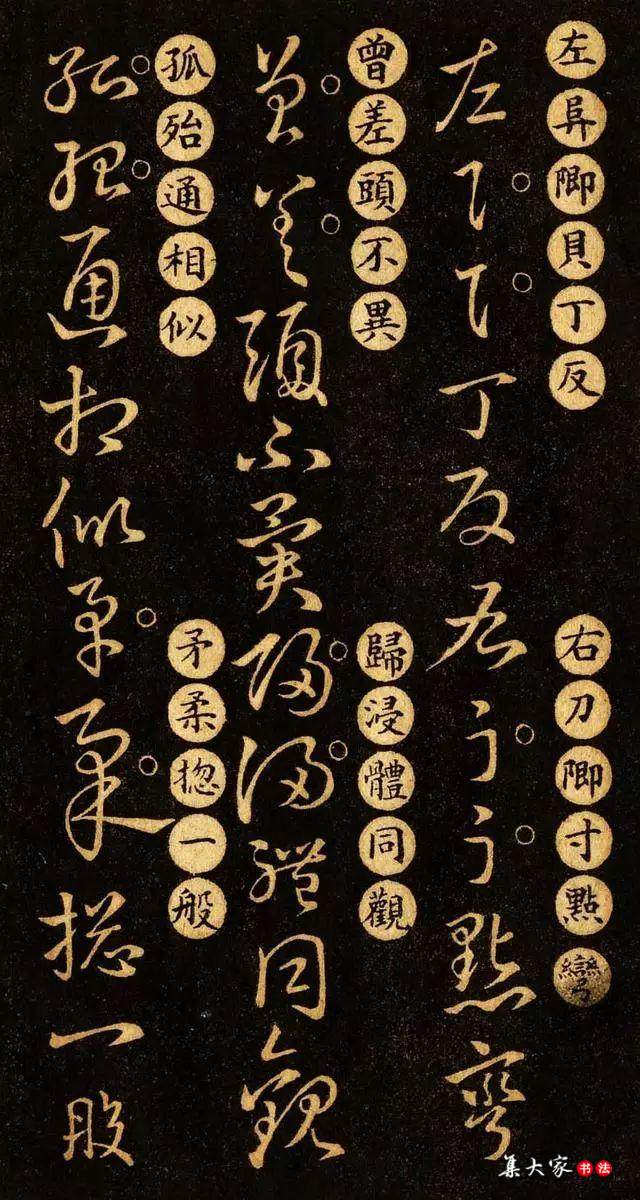 左阜即貝丁反
右刀即寸點彎
左阝阝丁反右刂刂點彎
曾差頭不異
歸浸體同觀
曾差頭不異歸浸體同觀
孤殆通相似
矛柔揔一般
孤殆通相似矛柔揔一般
集大家书法